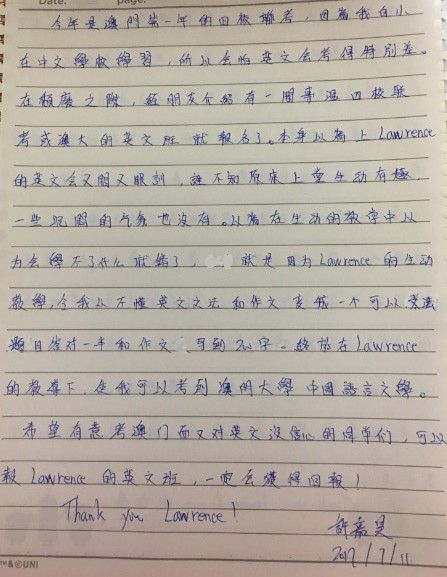 Date: page:
今年是澳門第一年的四校聯考，因為我自小
在中文學校學習，所以会怕英文会考得特別差。
在頹廢之際，經朋友介紹有一間專溫四校联
考或澳大的英文班就報名了。本身以為上Lawrence
的英文会又悶又服刻，誰不知原來上堂生动有趣
一些沉悶的气氛也沒有。以為在生动的教学中以
为会學不了什么就錯了，就是因为Lawrence的生动
教學，令我从不懂英文文法和作文变成一个可以文法
題目答对一半和作文写到200字。終於在Lawrence
的教導下，使我可以考到澳門大學中國語言文學。
希望有意考澳门而又对英文沒信心的同学们，可以
報Lawrence的英文班，一定会獲得回報！
Thank you Lawrence!
許嘉
2017/7/11
™&©UNI